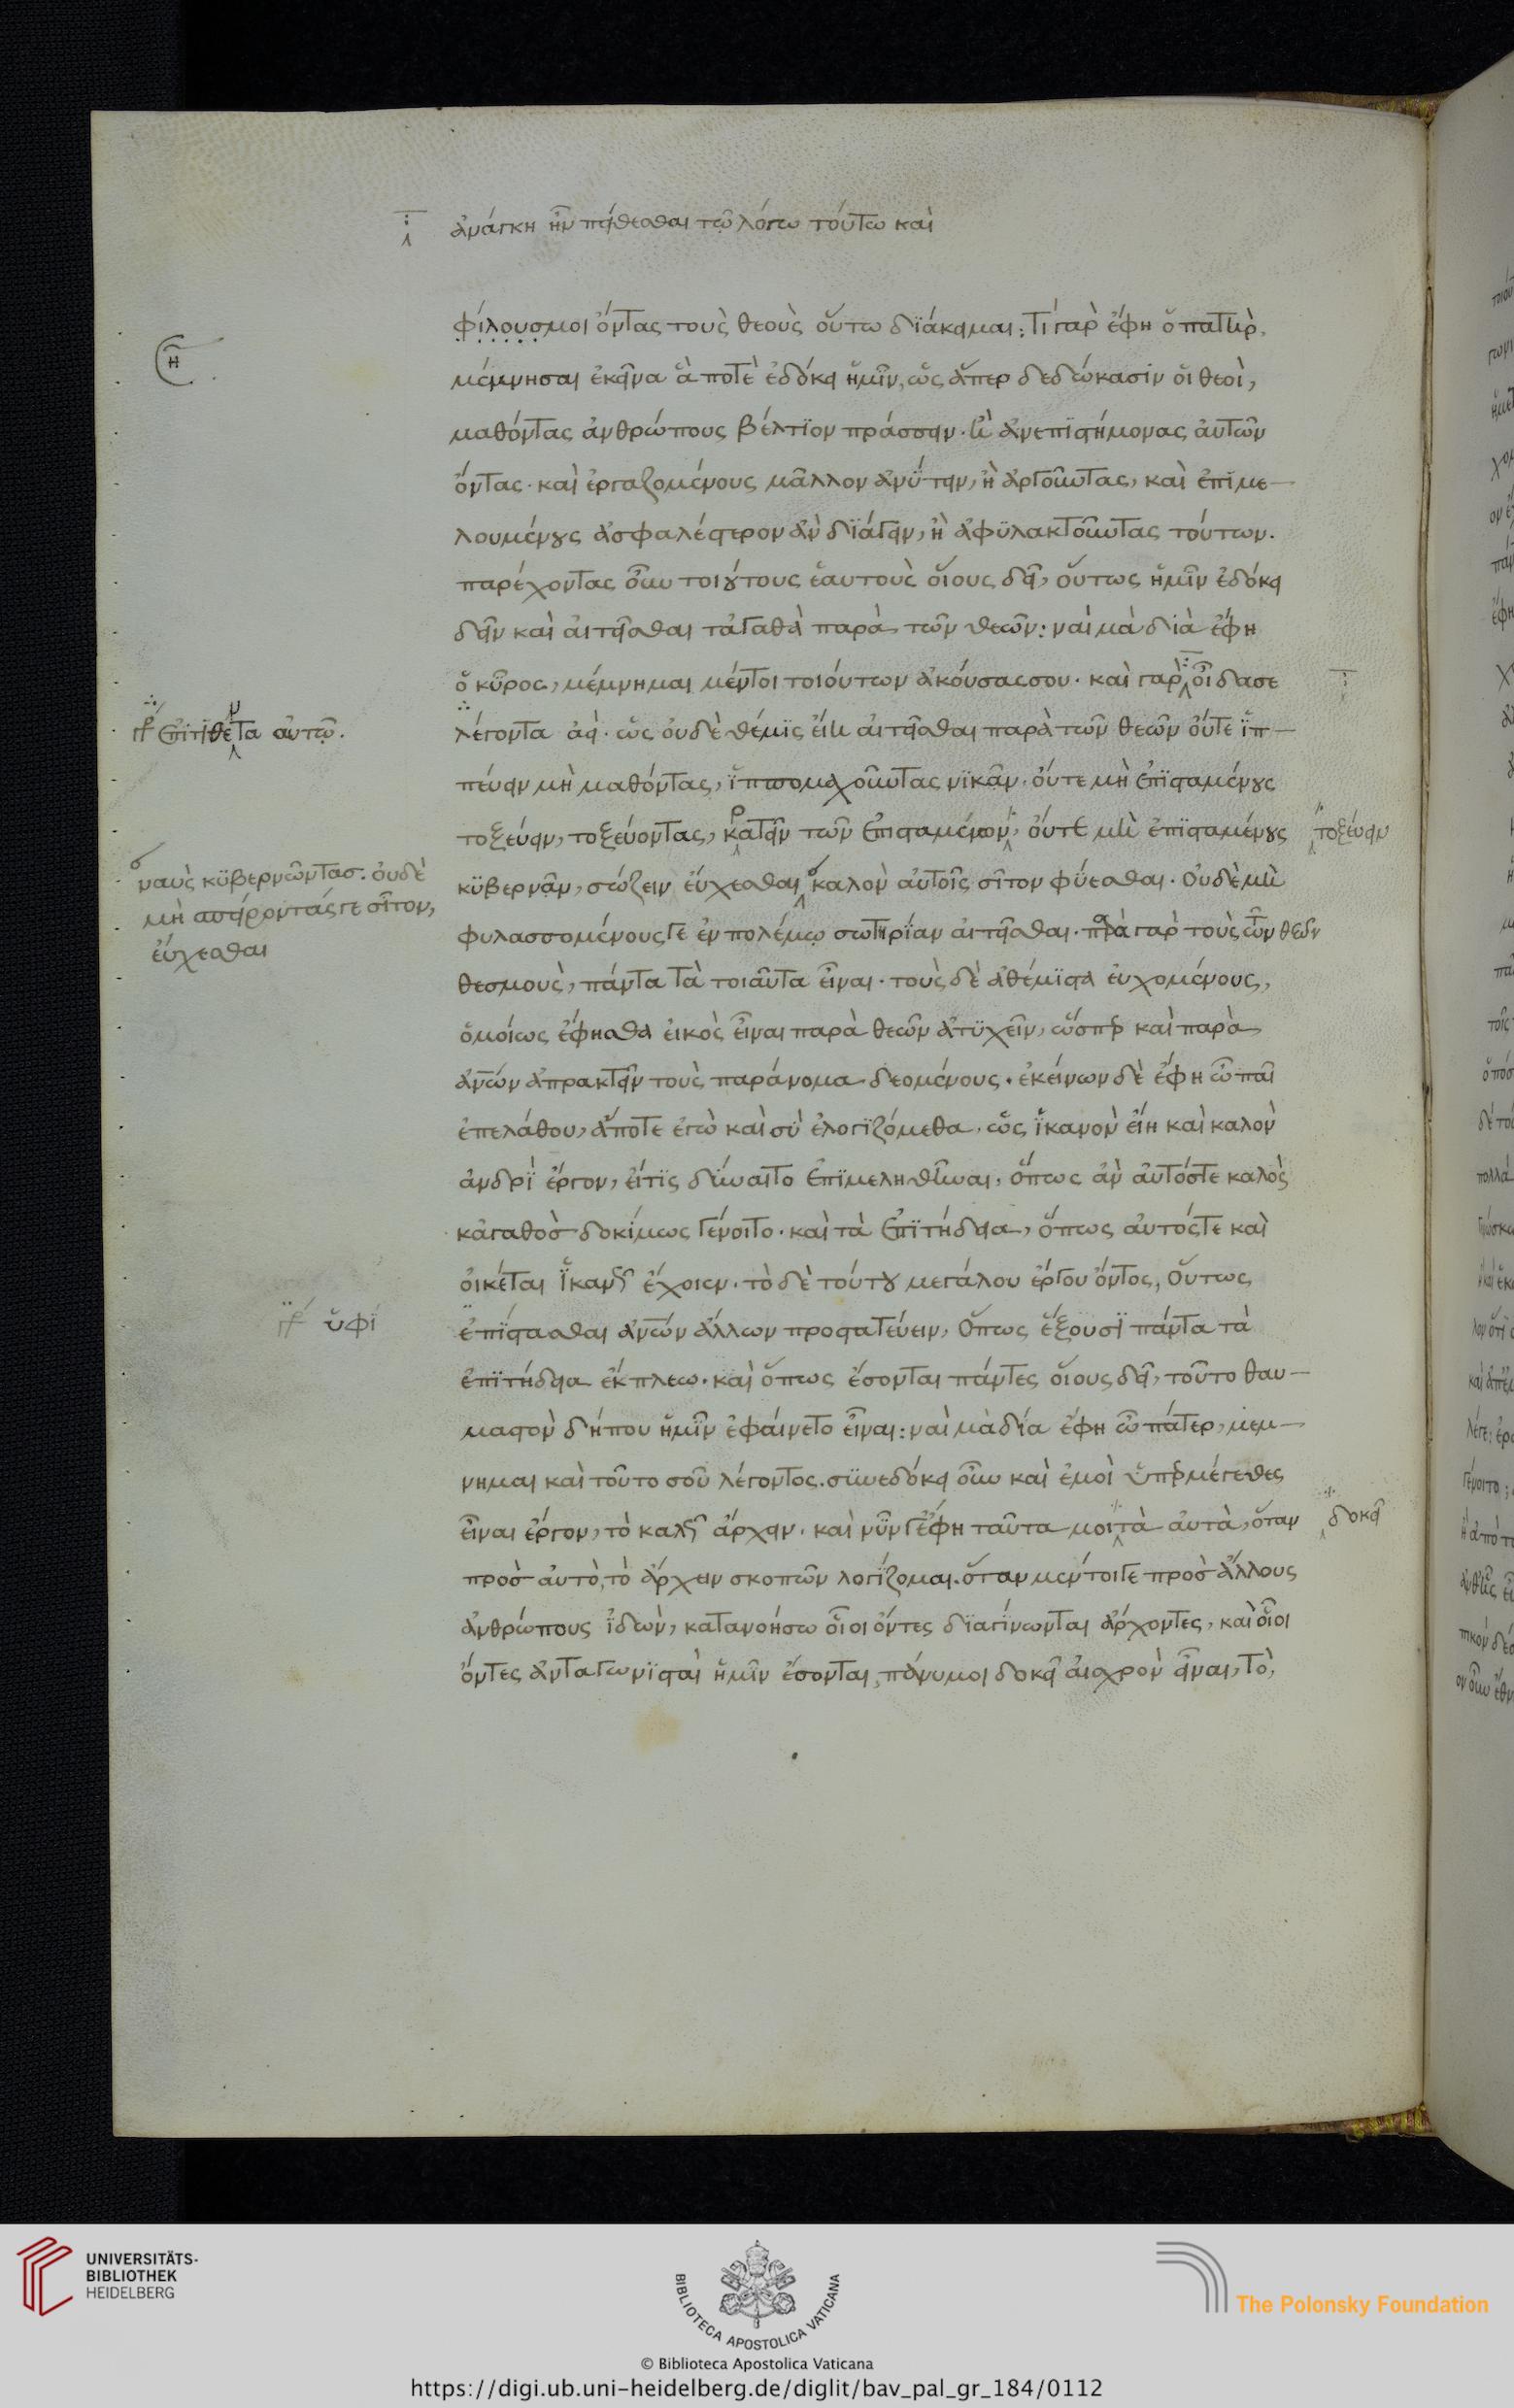 ἀνάγκη ἦν πείθεσθαι τῶ λόγω τούτω καὶ
φίλουσμοι ὄντας τοὺς θεοὺς οὕτω διάκειμαι: τί γὰρ ἔφη ὁ πατὴρ,
μέμνησαι ἐκεῖνα ἅ ποτὲ ἐδόκει ἡμῖν, ὡς ἅπερ δεδώκασιν οἱ θεοὶ,
μαθόντας ἀνθρώπους βέλτϊον πράσσειν. ἢ ἀνεπϊστήμονας αὐτῶν
ὄντας. καὶ ἐργαζομένους μᾶλλον ἀνΰτειν, ἢ ἀργοῦντας, καὶ ἐπϊμε–
λουμένους ἀσφαλέστερον ἂν δϊάγειν, ἢ ἀφϋλακτοῦντας τούτων.
παρέχοντας οὖν τοιούτους ἑαυτοὺς οἵους δεῖ, οὕτως ἡμῖν ἐδόκει
δεῖν καὶ αἰτεῖσθαι τἀγαθὰ παρὰ τῶν θεῶν: ναὶ μὰ δία ἔφη
ὁ κῦρος, μέμνημαι μέντοι τοιούτων ἀκούσας σου. καὶ γὰρ οἶδα σε
γρ ἐπιτϊθέντα αὐτῷ.
λέγοντα ἀεὶ. ὡς οὐδὲ θέμϊς εἴη αἰτεῖσθαι παρὰ τῶν θεῶν οὔτε ἱπ–
πεύειν μὴ μαθόντας, ἱππομαχοῦντας νϊκᾶν. οὔτε μὴ ἐπϊσταμένους
τοξεύειν, τοξεύοντας, κρατεῖν τῶν ἐπισταμένων, οὔτε μὴ ἐπϊσταμένους
τοξεύειν
κϋβερνᾶν, σώζειν εὔχεσθαι καλὸν αὐτοῖς σῖτον φΰεσθαι. οὐδὲ μὴ
ναῦς κϋβερνῶντας. οὐδὲ
μὴ σπείροντάς γε σῖτον,
εὔχεσθαι
φυλασσομένους γε ἐν πολέμῳ σωτηρΐαν αἰτεῖσθαι. παρὰ γὰρ τοὺς τῶν θεῶν
θεσμοὺς, πάντα τὰ τοιαῦτα εἶναι. τοὺς δὲ ἀθέμϊστα εὐχομένους,
ὁμοίως ἔφησθα εἰκὸς εἶναι παρὰ θεῶν ἀτϋχεῖν, ὥσπερ καὶ παρὰ
ἀνων ἀπρακτεῖν τοὺς παράνομα δεομένους. ἐκείνων δὲ ἔφη ὦ παῖ
ἐπελάθου, ἅποτε ἐγὼ καὶ σὺ ἐλογϊζόμεθα. ὡς ἱκανὸν εἴη καὶ καλὸν
ἀνδρϊ ἔργον, εἴτϊς δύναιτο ἐπϊμεληθῆναι, ὅπως ἂν αὐτόςτε καλὸς
κἀγαθὸς δοκίμως γένοιτο. καὶ τὰ ἐπϊτήδεια, ὅπως αὐτόςτε καὶ
οἰκέται ἱκανῶς ἔχοιεν. τὸ δὲ τούτου μεγάλου ἔργου ὄντος, οὕτως
γρ ὑφϊ
ἐπΐστασθαι ἀνων ἄλλων προστατεύειν, ὅπως ἕξουσϊ πάντα τὰ
ἐπϊτήδεια ἔκπλεω. καὶ ὅπως ἔσονται πάντες οἵους δεῖ, τοῦτο θαυ–
μαστὸν δήπου ἡμῖν ἐφαίνετο εἶναι: ναὶ μὰ δία ἔφη ὦ πάτερ, μέμ–
νημαι καὶ τοῦτο σοῦ λέγοντος. σϋνεδόκει οὖν καὶ ἐμοὶ ὑπερμέγεθες
εἶναι ἔργον, τὸ καλῶς ἄρχειν. καὶ νῦν γ ἔφη ταῦτα μοι τὰ αὐτὰ, ὅταν
δοκεῖ
πρὸς αὐτὸ, τὸ ἄρχειν σκοπῶν λογίζομαι. ὅταν μέντοιγε πρὸς ἄλλους
ἀνθρώπους ἰδὼν, κατανοήσω οἷοι ὄντες δϊαγίνωνται ἄρχοντες, καὶ οἷοι
ὄντες ἀνταγωνϊσταὶ ἡμῖν ἔσονται, πάνυ μοι δοκεῖ αἰσχρὸν εἶναι, τὸ,
UNIVERSITÄTS-
BIBLIOTHEK
HEIDELBERG
BIBLIOTECA APOSTOLICA VATICANA
The Polonsky Foundation
© Biblioteca Apostolica Vaticana
https://digi.ub.uni-heidelberg.de/diglit/bav_pal_gr_184/0112